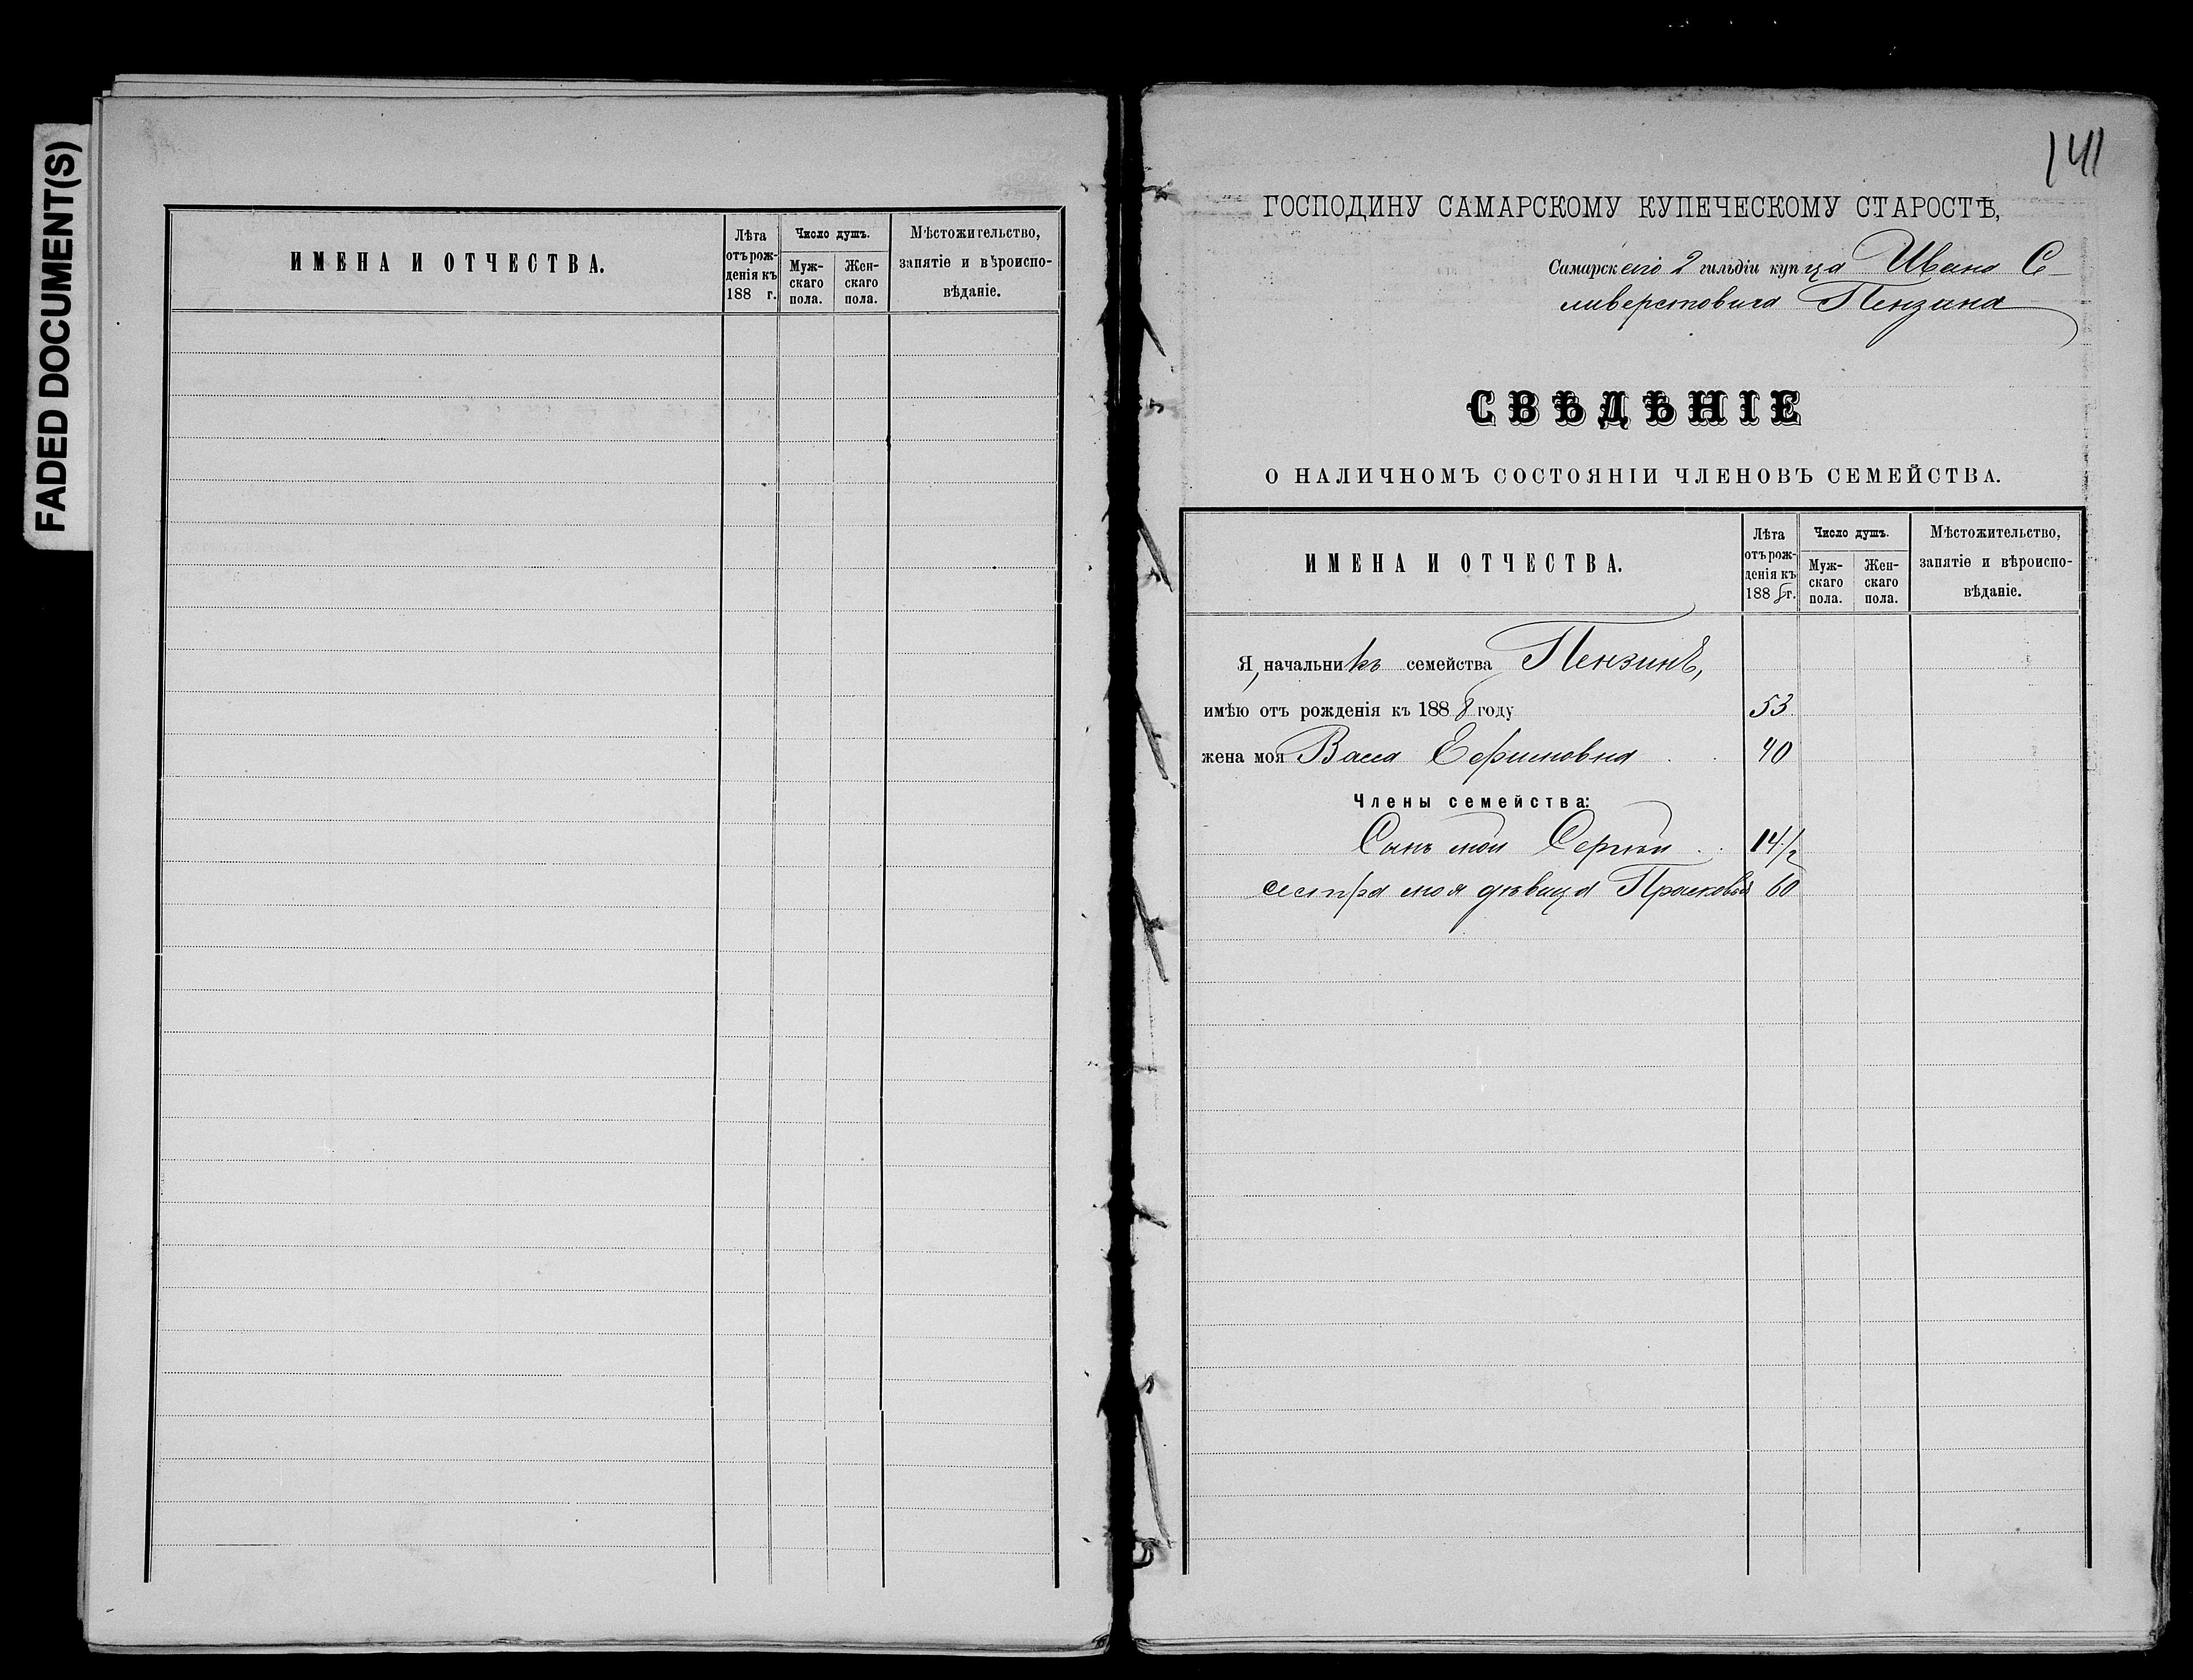 FADED DOCUMENT(S)
ИМЕНА И ОТЧЕСТВА.
Лѣта
отъ рож-
денія къ
188 г.
Число душъ.
Муж-
скаго
пола.
Жен-
скаго
пола.
Мѣстожительство,
занятіе и вѣроиспо-
вѣданіе.
141
ГОСПОДИНУ САМАРСКОМУ КУПЕЧЕСКОМУ СТАРОСТѢ,
Самарскаго 2 гильдіи купца Ивана Се-
ливерстовича Пензина
СВѢДѢНІЕ
О НАЛИЧНОМЪ СОСТОЯНІИ ЧЛЕНОВЪ СЕМЕЙСТВА.
ИМЕНА И ОТЧЕСТВА.
Лѣта
отъ рож-
денія къ
1888 г.
Число душъ.
Муж-
скаго
пола.
Жен-
скаго
пола.
Мѣстожительство,
занятіе и вѣроиспо-
вѣданіе.
Я, начальникъ семейства Пензинъ,
имѣю отъ рожденія къ 1888 году 53
жена моя Васса Ефимовна 40
Члены семейства:
Сынъ мой Сергѣй 14 1/2
сестра моя дѣвица Прасковья 60